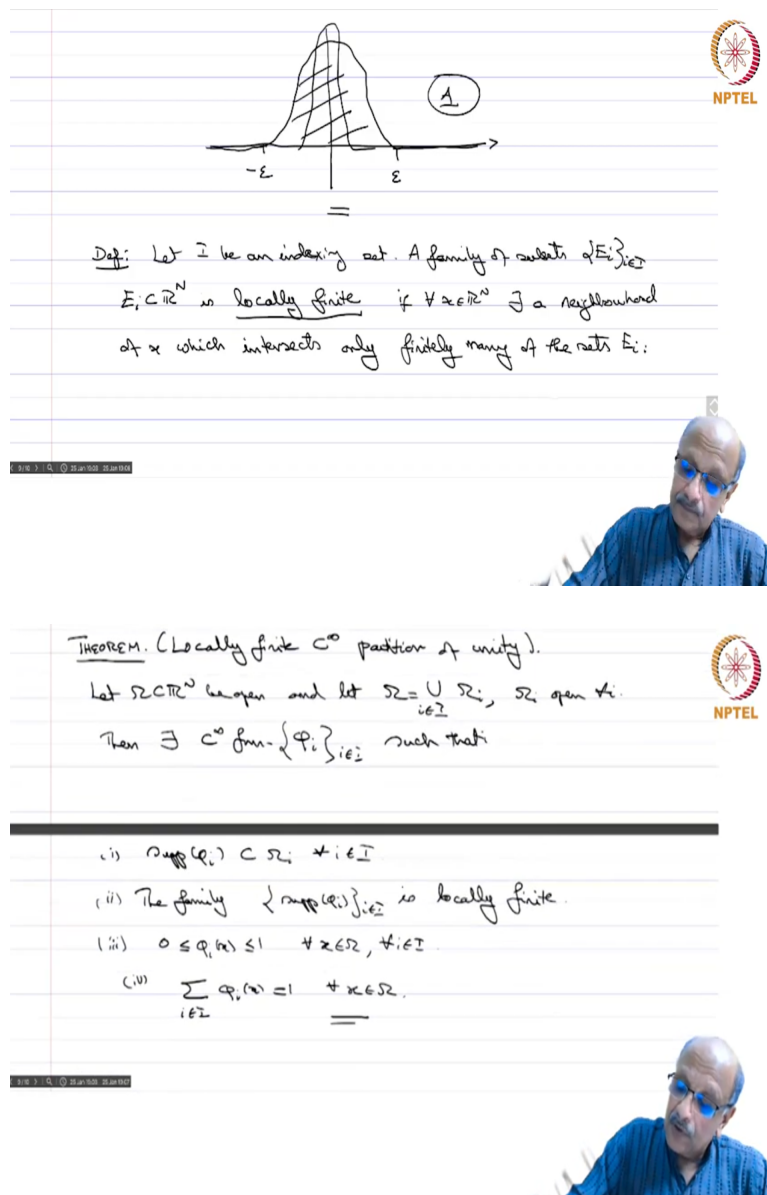 NPTEL
1
-ε ε
Def: Let I be an indexing set. A family of subsets {E_i}_{i∈I}
E_i ⊂ ℝ^N is locally finite if ∀ x∈ℝ^N ∃ a neighbourhood
of x which intersects only finitely many of the sets E_i.
9/10
THEOREM. (Locally finite C^∞ partition of unity).
NPTEL
Let Ω⊂ℝ^N be open and let Ω = ∪_{i∈I} Ω_i, Ω_i open ∀i.
Then ∃ C^∞ fun. {φ_i}_{i∈I} such that
(i) supp(φ_i) ⊂ Ω_i ∀ i∈I
(ii) The family {supp(φ_i)}_{i∈I} is locally finite.
(iii) 0 ≤ φ_i(x) ≤ 1 ∀ x∈Ω, ∀i∈I.
(iv) Σ_{i∈I} φ_i(x) = 1 ∀ x∈Ω.
9/10